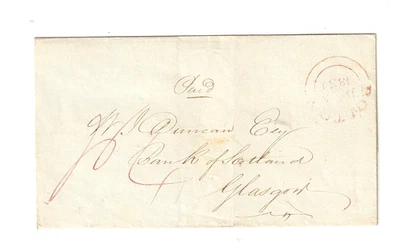 Paid
W. J. Duncan Esq
Bank of Scotland
Glasgow